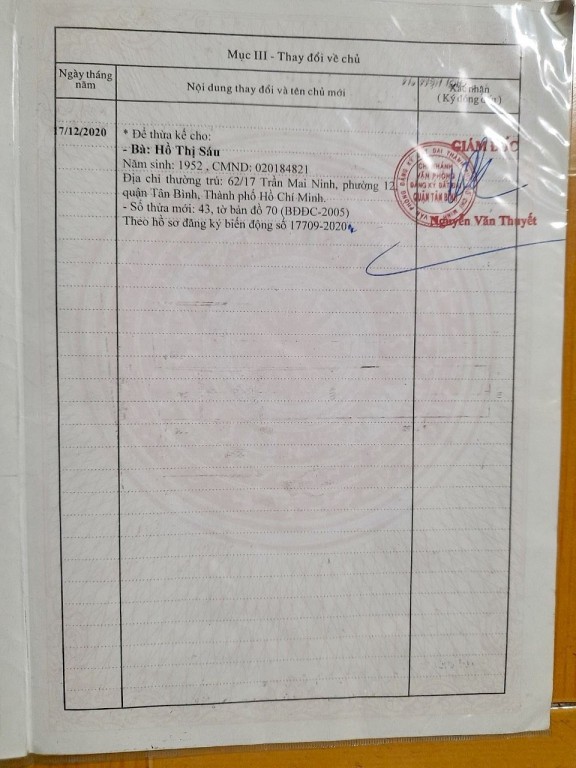 Mục III - Thay đổi về chủ
Ngày tháng năm
Nội dung thay đổi và tên chủ mới
Xác nhận
( Ký đóng dấu )
17/12/2020
* Để thừa kế cho:
- Bà: Hồ Thị Sáu
Năm sinh: 1952 , CMND: 020184821
Địa chỉ thường trú: 62/17 Trần Mai Ninh, phường 12,
quận Tân Bình, Thành phố Hồ Chí Minh.
- Số thửa mới: 43, tờ bản đồ 70 (BĐĐC-2005)
Theo hồ sơ đăng ký biến động số 17709-2020
GIÁM ĐỐC
CHI NHÁNH
VĂN PHÒNG
ĐĂNG KÝ ĐẤT ĐAI
QUẬN TÂN BÌNH
Nguyễn Văn Thuyết